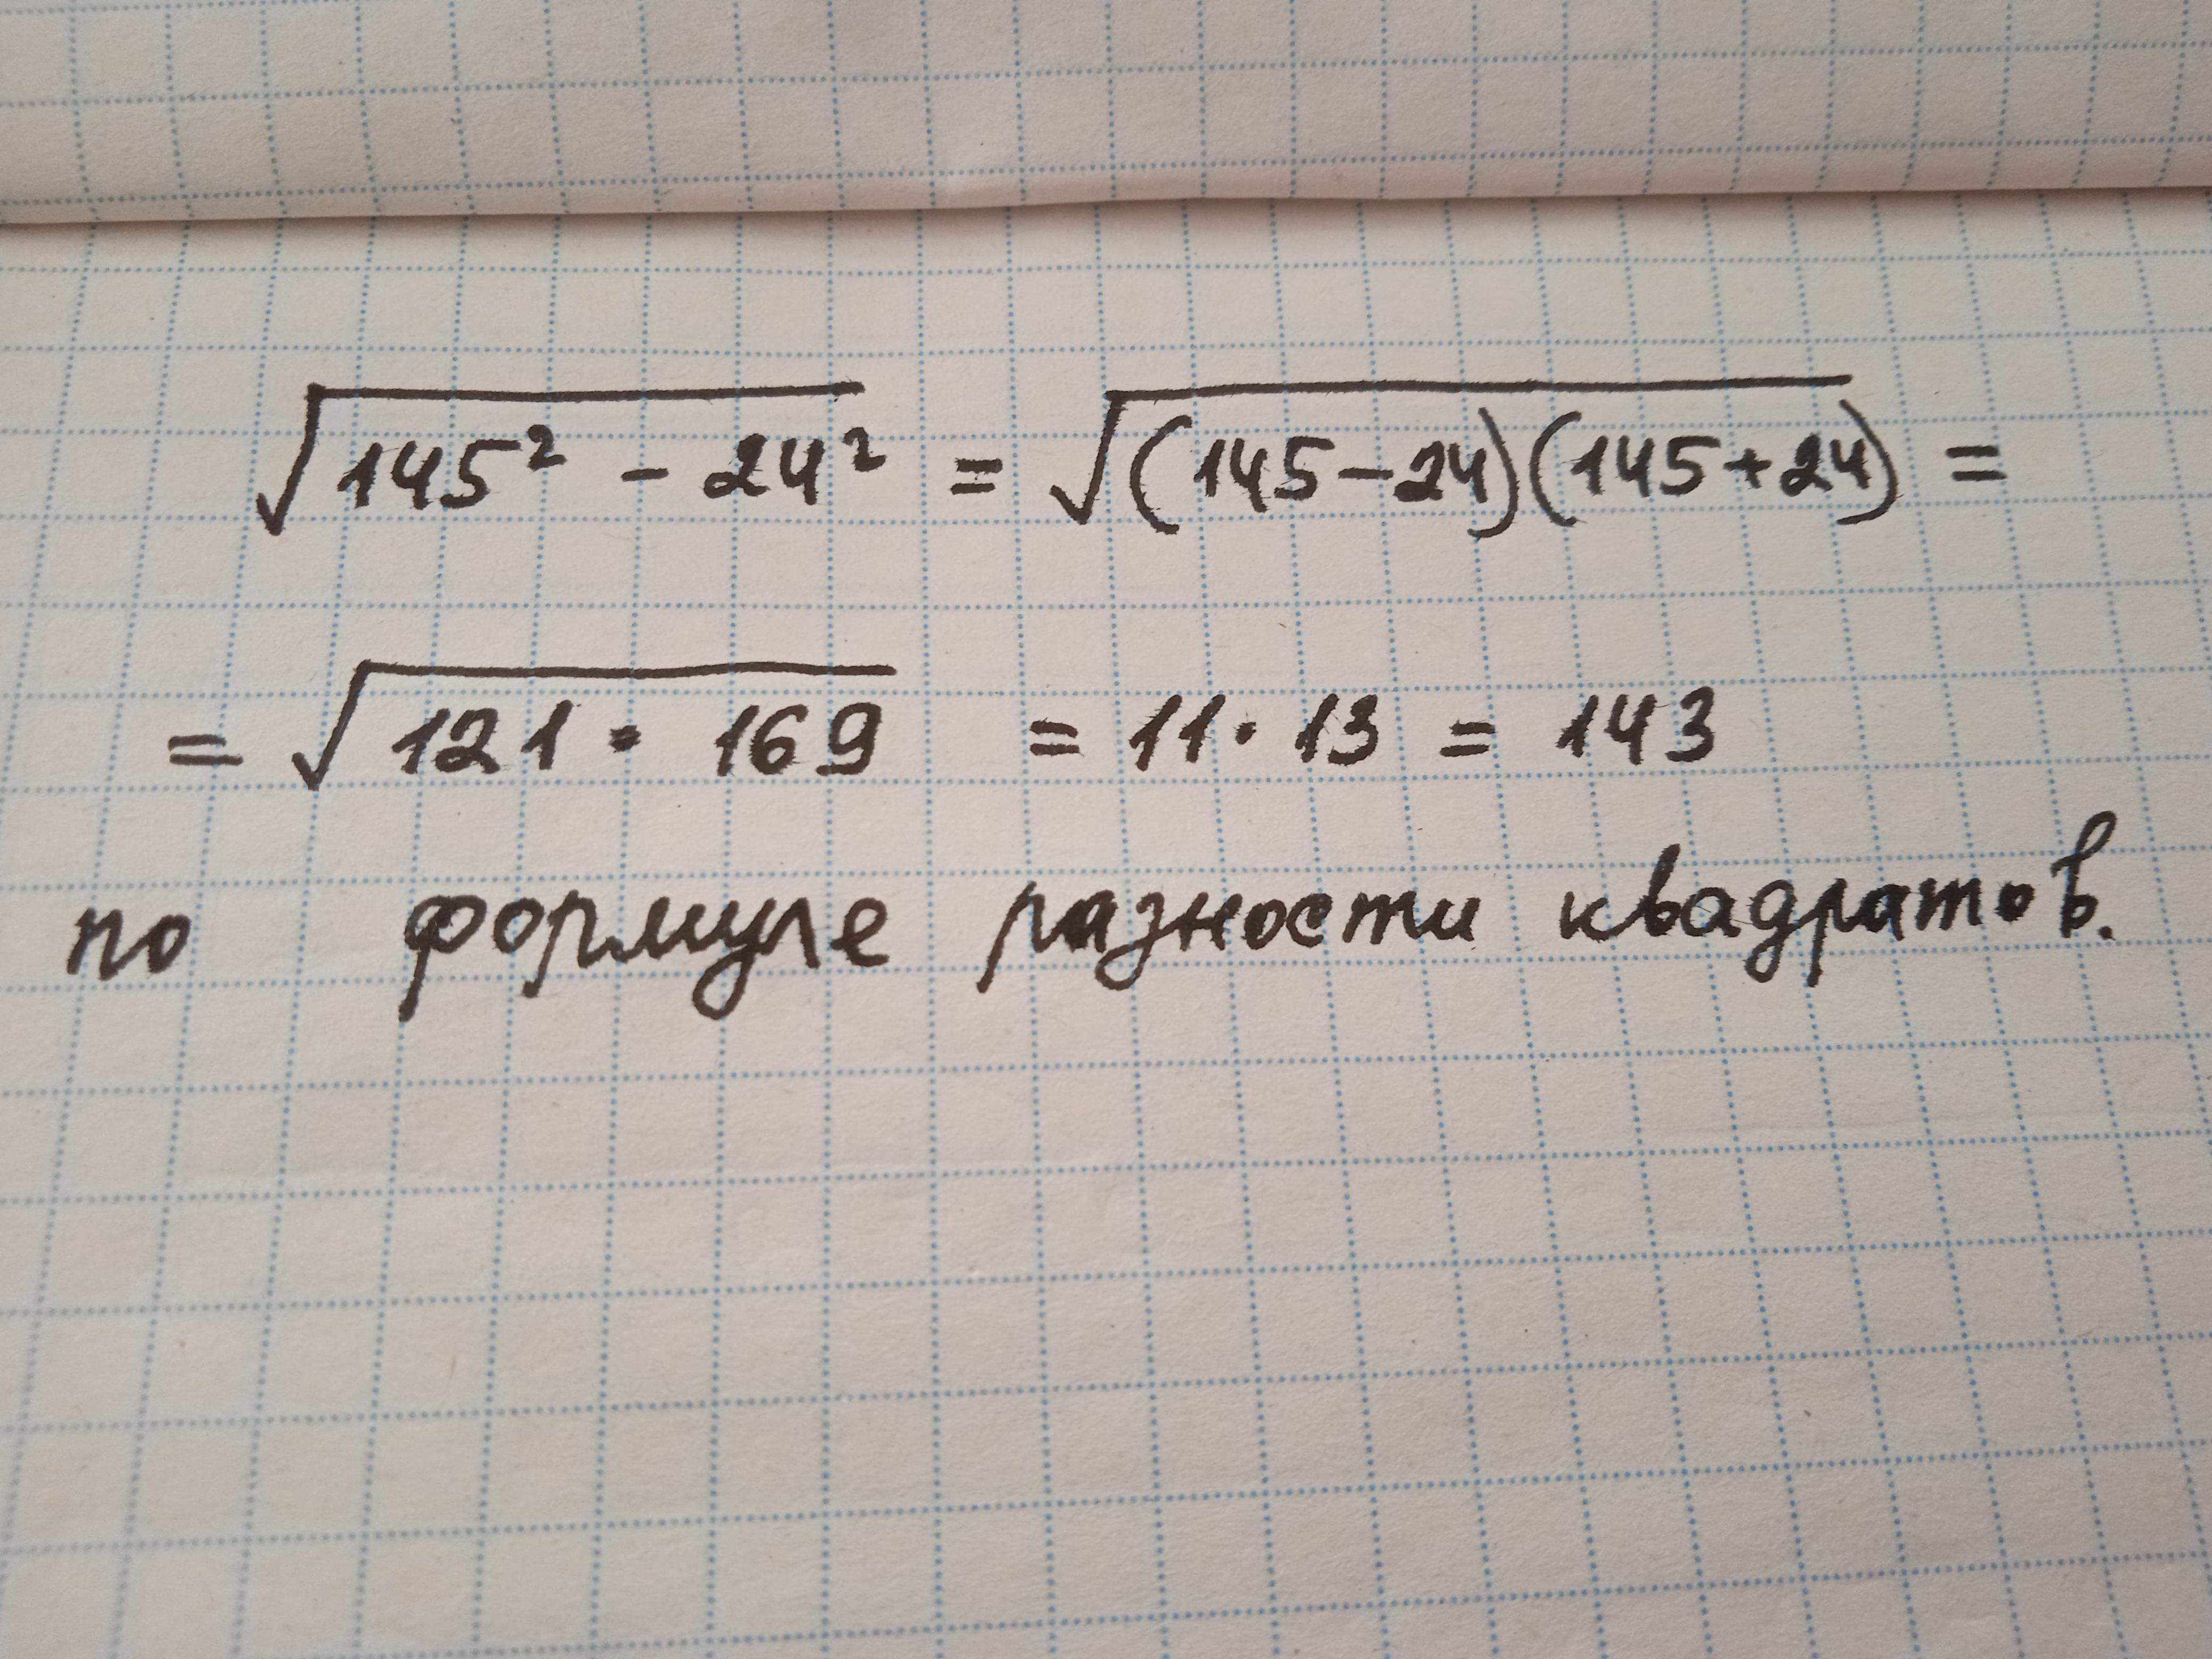 √145² - 24² = √(145-24)(145+24) =
= √121 · 169 = 11 · 13 = 143
по формуле разности квадратов.